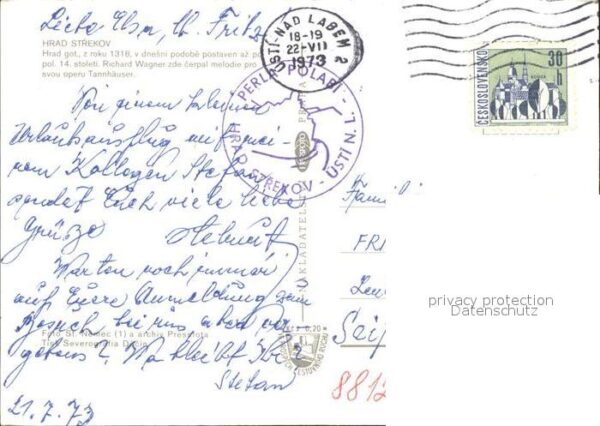 Liebe Elsa, lb. Fritz
HRAD STŘEKOV
Hrad got. z roku 1316, v dnešní podobě postaven až po
pol. 14. století. Richard Wagner zde čerpal melodie pro
svou operu Tannhäuser.
Von einem kleinen
Urlaubsausflug mit mei-
nem Kollegen Stefan
sendet Euch viele liebe
Grüsse Helmut
Warten noch immer
auf Eure Anmeldung zum
Besuch bei uns, aber ver-
gebens? Wo bleibt Ihr?
Stefan
21.7.73
Foto St. Němec (1) a archiv Pressfota
Tisk Severografia Děčín
ÚSTÍ NAD LABEM 2
18-19
22-VII
1973
PERLA POLABÍ - HRAD STŘEKOV - ÚSTÍ N. L.
NAKLADATEL
PRAHA
Kčs 0,20
ČESKOSLOVENSKO
30
h
Famili
FRI
Seif
8812
privacy protection
Datenschutz